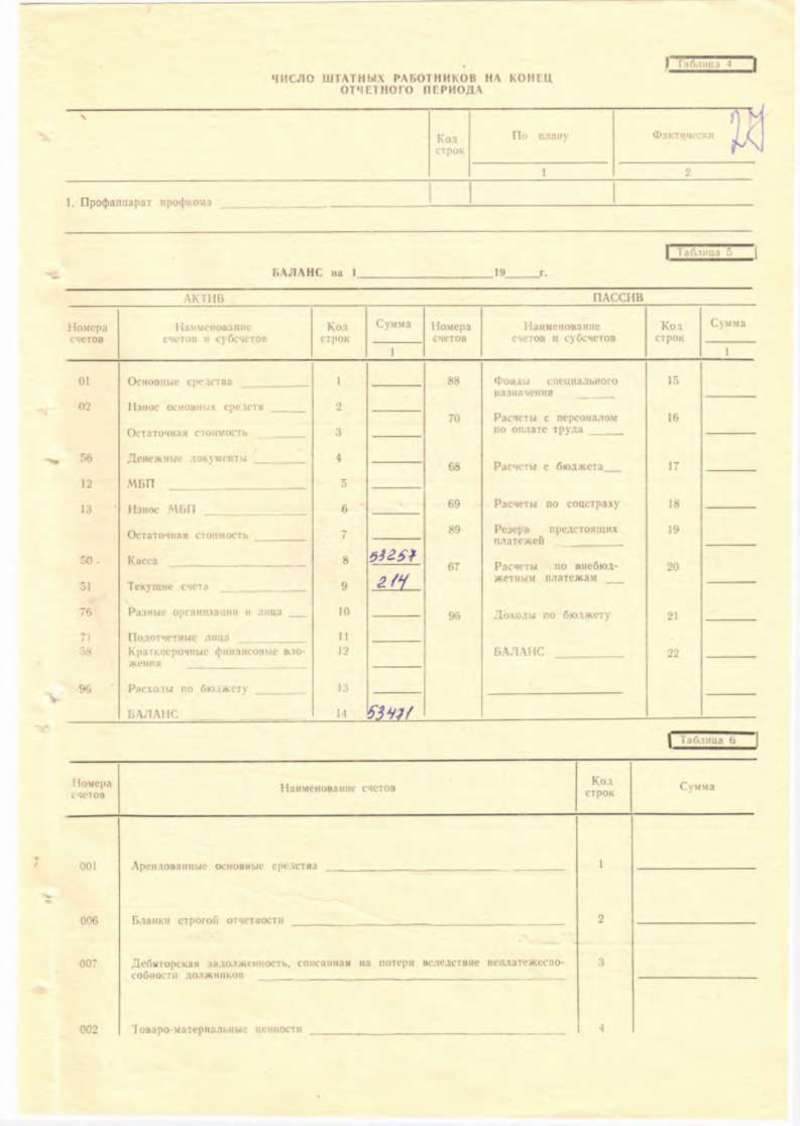 Таблица 4
ЧИСЛО ШТАТНЫХ РАБОТНИКОВ НА КОНЕЦ
ОТЧЕТНОГО ПЕРИОДА
Код строк По плану Фактически
27
1 2
1. Профаппарат профкома
Таблица 5
БАЛАНС на 1 19 г.
АКТИВ ПАССИВ
Номера счетов Наименование счетов и субсчетов Код строк Сумма Номера счетов Наименование счетов и субсчетов Код строк Сумма
1 1
01 Основные средства 1
88 Фонды специального назначения 15
02 Износ основных средств 2
70 Расчеты с персоналом по оплате труда 16
Остаточная стоимость 3
56 Денежные документы 4
68 Расчеты с бюджета 17
12 МБП 5
13 Износ МБП 6
69 Расчеты по соцстраху 18
Остаточная стоимость 7
89 Резерв предстоящих платежей 19
50 Касса 8 53257
67 Расчеты по внебюд-
жетным платежам 20
51 Текущие счета 9 214
76 Разные организации и лица 10
96 Доходы по бюджету 21
71 Подотчетные лица 11
58 Краткосрочные финансовые вло-
жения 12
БАЛАНС 22
96 Расходы по бюджету 13
БАЛАНС 14 53471
Таблица 6
Номера счетов Наименование счетов Код строк Сумма
001 Арендованные основные средства 1
006 Бланки строгой отчетности 2
007 Дебиторская задолженность, списанная на потери вследствие неплатежеспо-
собности должников 3
002 Товаро-материальные ценности 4